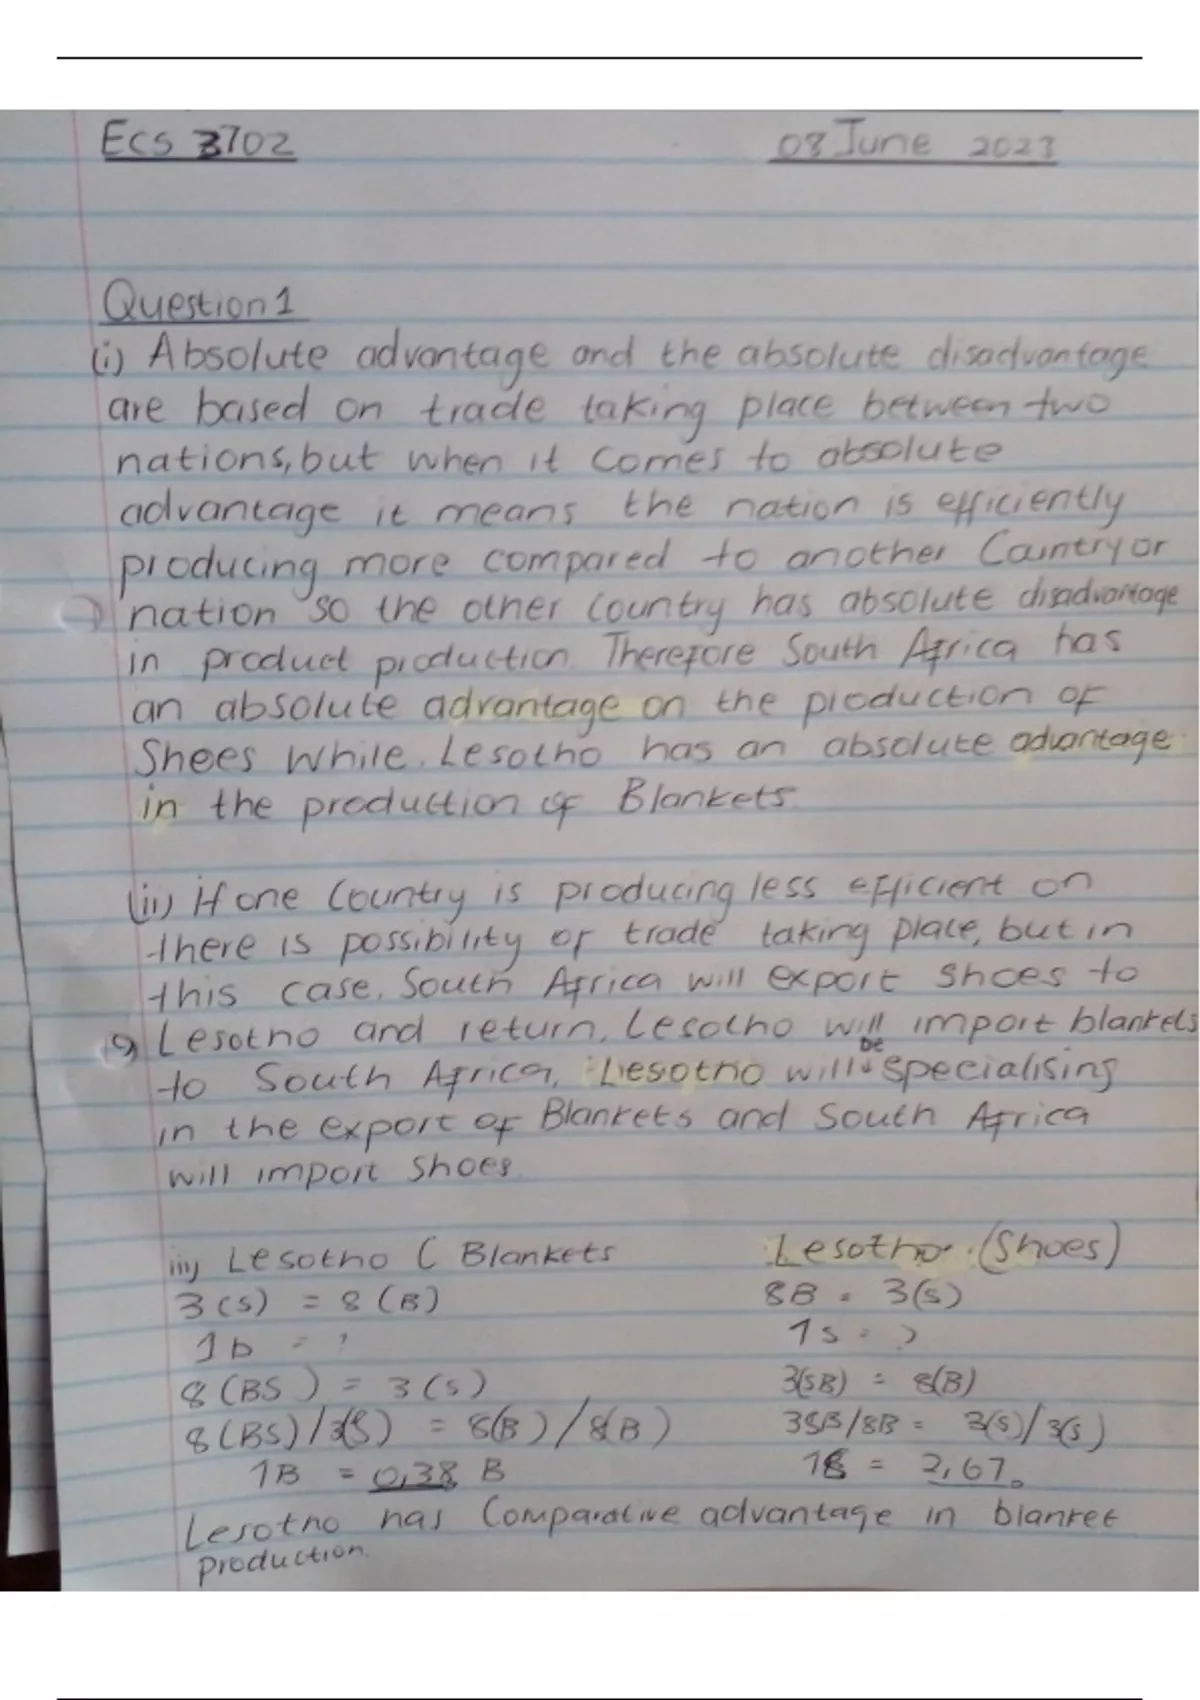 Ecs 3702
08 June 2023
Question 1
(i) Absolute advantage and the absolute disadvantage
are based on trade taking place between two
nations, but when it comes to absolute
advantage it means the nation is efficiently
producing more compared to another Country or
nation so the other country has absolute disadvantage
in product production. Therefore South Africa has
an absolute advantage on the production of
Shoes while. Lesotho has an absolute advantage
in the production of Blankets.
(ii) If one Country is producing less efficient on
there is possibility of trade taking place, but in
this case, South Africa will export shoes to
Lesotho and return, Lesotho will import blankets
to South Africa, Lesotho will be specialising
in the export of Blankets and South Africa
will import shoes.
iii) Lesotho ( Blankets
3 (S) = 8 (B)
1b = ?
8 (BS) = 3 (S)
8 (BS) / 3(S) = 8(B) / 8(B)
1B = 0,38 B
Lesotho (Shoes)
8B = 3(S)
1S = ?
3(SB) = 8(B)
3SB/8B = 3(S)/3(S)
1S = 2,67
Lesotho has Comparative advantage in blanket
production.